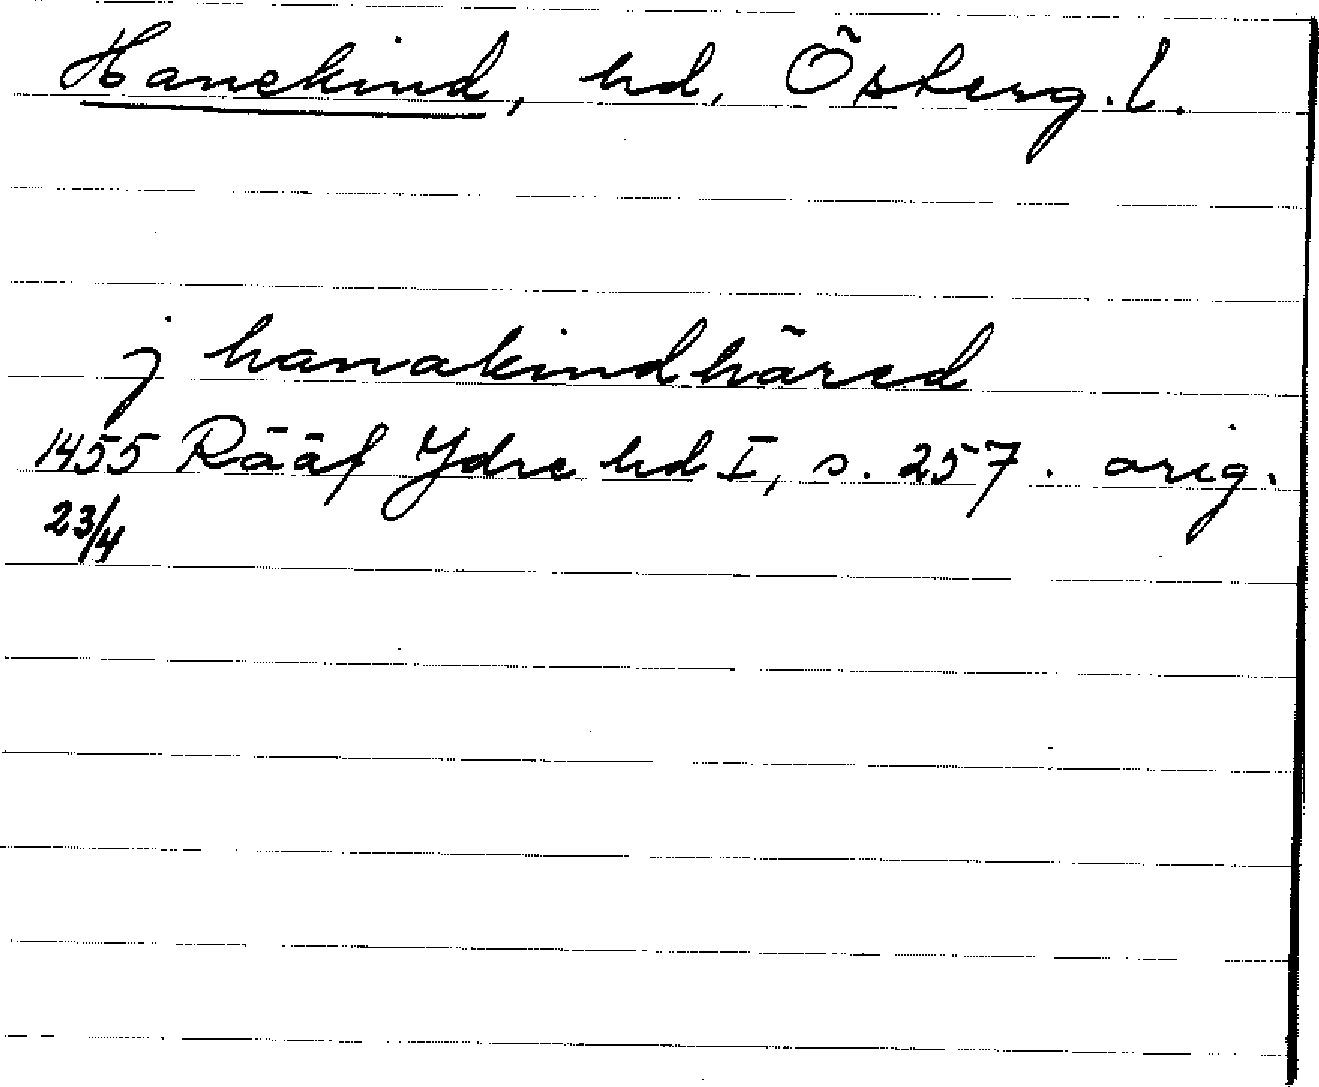 Hanekind, hd, Österg. l.
j hanakindhäred
1455 Rääf Ydre hd I, s. 257. orig.
23/4